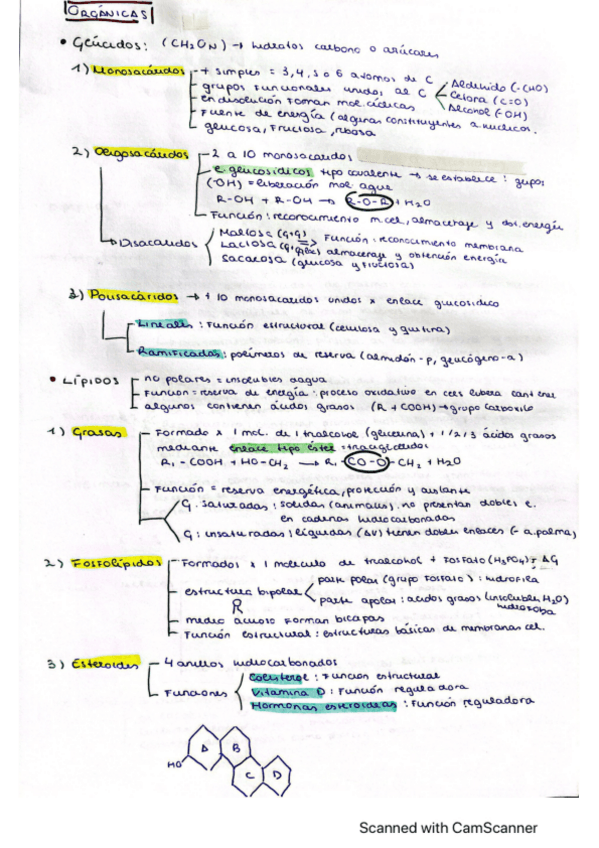 ORGÁNICAS
• Glúcidos: (CH2ON) → hidratos carbono o azúcares
1) Monosacáridos - + simples = 3, 4, 5 o 6 átomos de C
- grupos funcionales unidos al C
Aldehído (-CHO)
Cetona (C=O)
Alcohol (-OH)
- en disolución forman mol. cíclicas
- Fuente de energía (algunas constituyentes a.nucleicos.
glucosa, fructosa, ribosa
2) Oligosacáridos - 2 a 10 monosacáridos
- e. glucosídicos tipo covalente → se establece: grupos
(·OH) = liberación mol agua
R-OH + R-OH → R-O-R + H2O
- Función: reconocimiento m.cel, almacenaje y obt. energía
→ Disacáridos
Maltosa (G+G)
Lactosa => Función: reconocimiento membrana
almacenaje y obtención energía
Sacarosa (glucosa y fructosa)
3) Polisacáridos → + 10 monosacáridos unidos x enlace glucosídico
Lineales: Función estructural (celulosa y quitina)
Ramificados: polímeros de reserva (almidón-p, glucógeno-a)
• LÍPIDOS
- no polares = insolubles agua
- Función = reserva de energía: proceso oxidativo en cels libera cant ener
- algunos contienen ácidos grasos (R + COOH) → grupo carboxilo
1) Grasas - Formado x 1 mol. de 1 trialcohol (glicerina) + 1/2/3 ácidos grasos
mediante enlace tipo éster = triaglicéridos
R1-COOH + HO-CH2 → R1-CO-O-CH2 + H2O
- Función = reserva energética, protección y aislante
G. saturadas: sólidas (animales). no presentan dobles e.
en cadenas hidrocarbonadas
G. insaturadas: líquidas (ΔV) tienen dobles enlaces (- a.palma)
2) Fosfolípidos - Formados x 1 molécula de trialcohol + fosfato (H3PO4) + AG
- estructura bipolar
parte polar (grupo fosfato): hidrófila
parte apolar: ácidos grasos (insolubles H2O)
hidrófoba
R
- medio acuoso forman bicapas
- Función estructural: estructuras básicas de membranas cel.
3) Esteroides - 4 anillos hidrocarbonados
- Funciones
Colesterol: Función estructural
Vitamina D: Función reguladora
Hormonas esteroideas: Función reguladora
HO A B
C D
Scanned with CamScanner